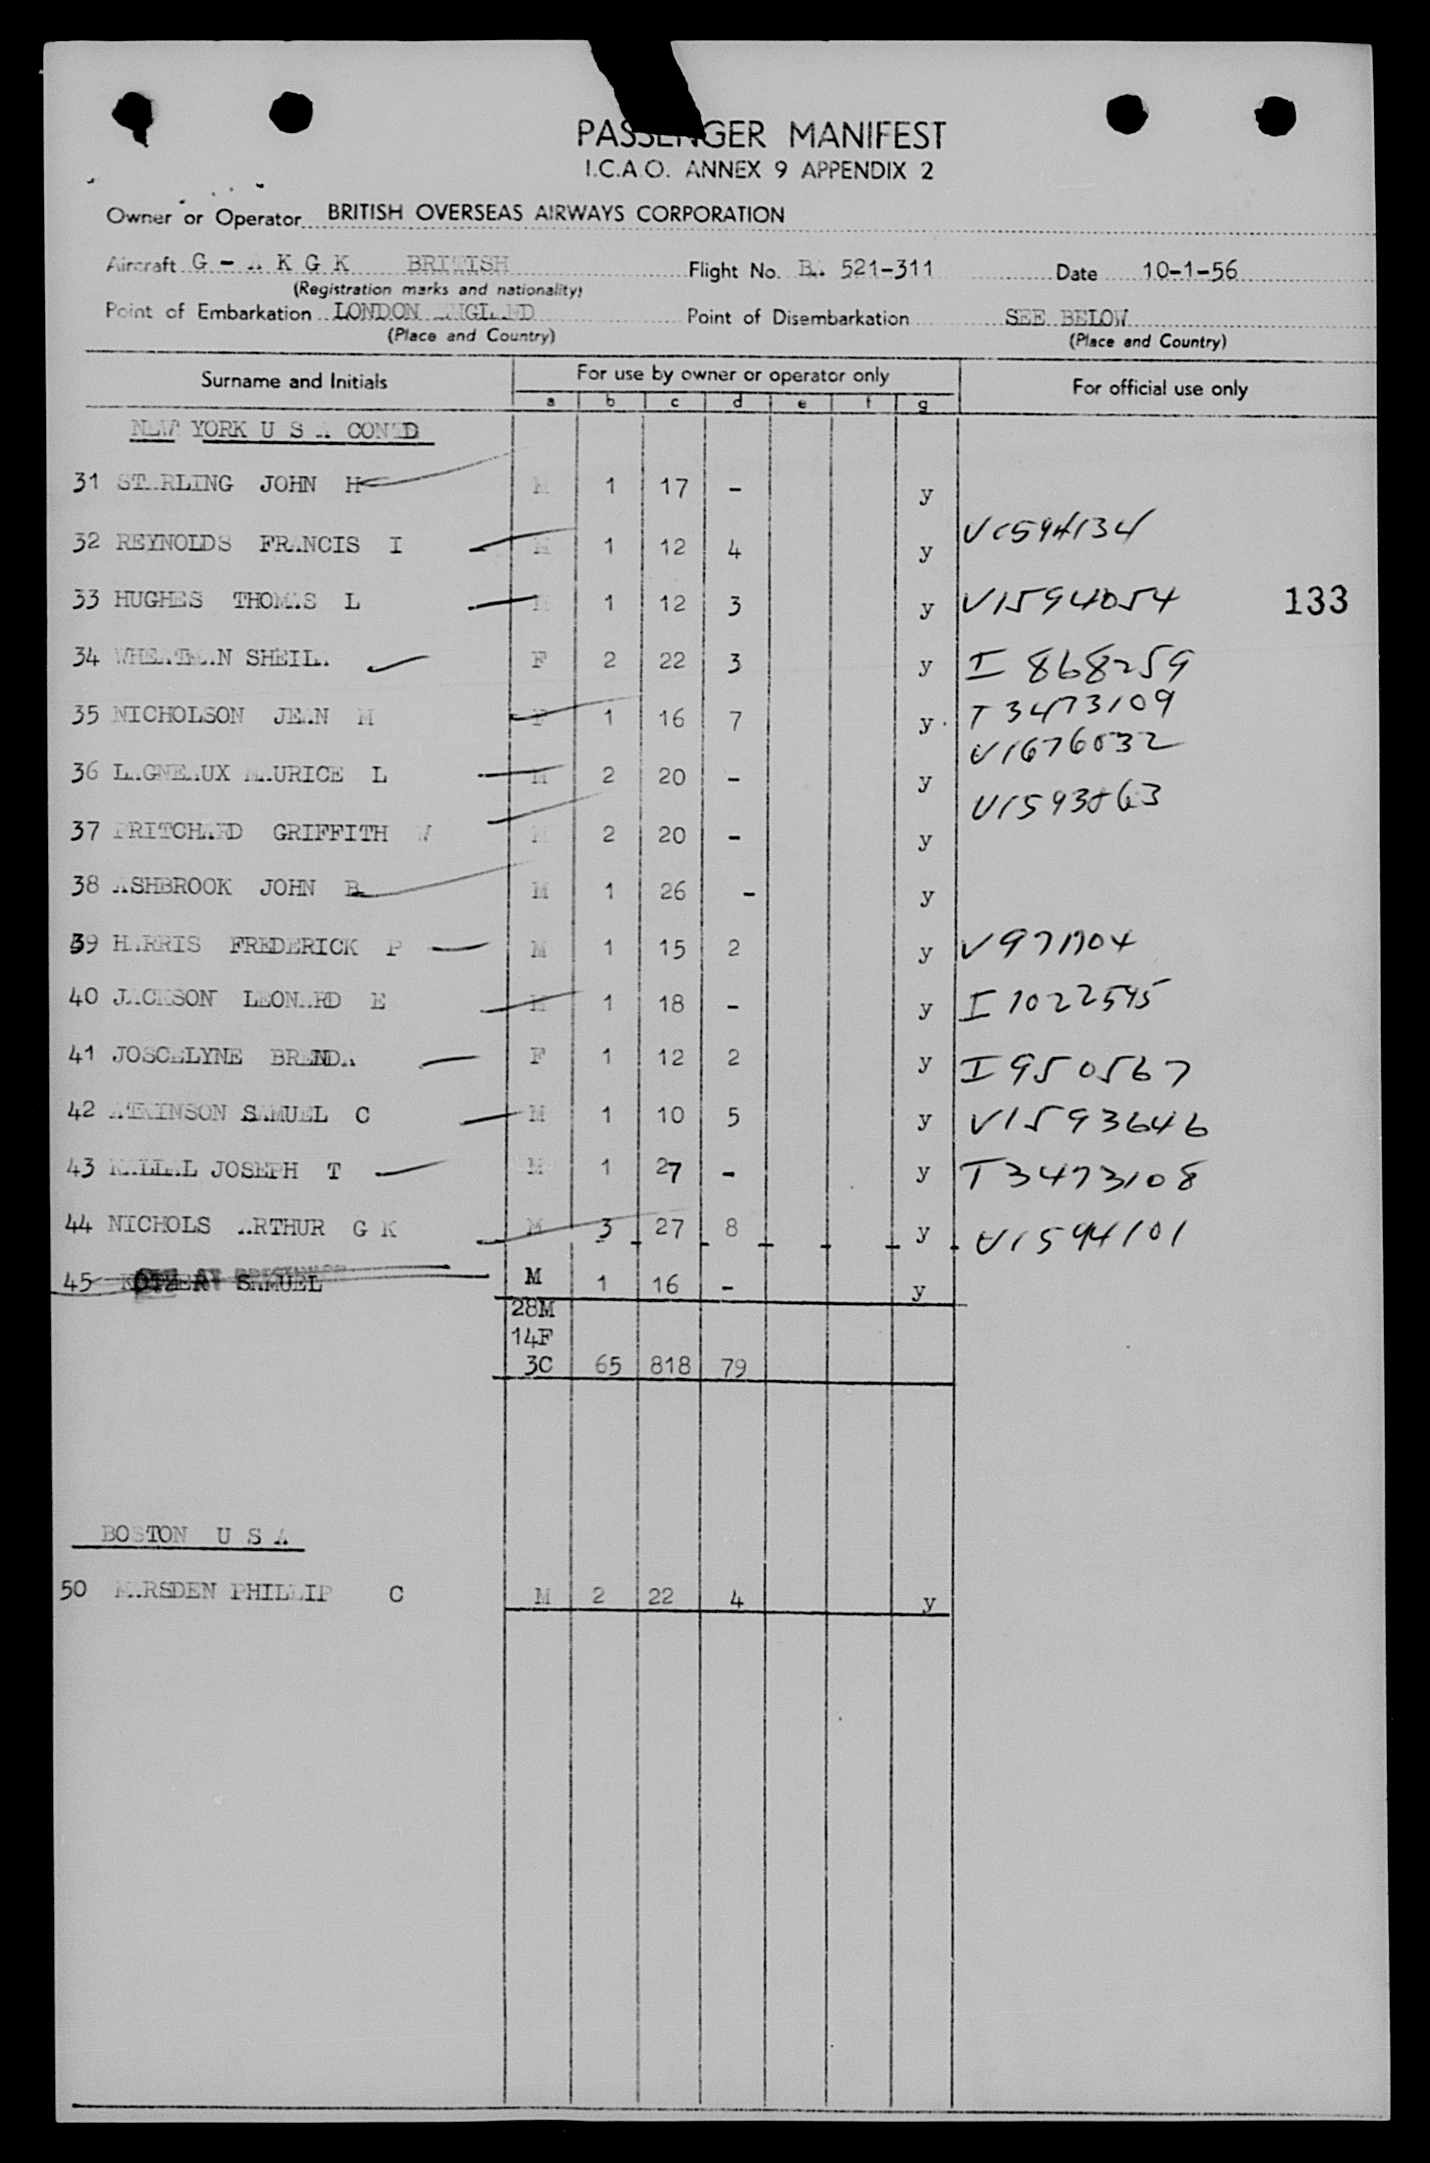 PASSENGER MANIFEST
I.C.A.O. ANNEX 9 APPENDIX 2
Owner or Operator BRITISH OVERSEAS AIRWAYS CORPORATION
Aircraft G - A K G K BRITISH Flight No. BA 521-311 Date 10-1-56
(Registration marks and nationality)
Point of Embarkation LONDON ENGLAND Point of Disembarkation SEE BELOW
(Place and Country) (Place and Country)
Surname and Initials For use by owner or operator only For official use only
a b c d e f g
NEW YORK U S A CONTD
31 STARLING JOHN H M 1 17 - y
32 REYNOLDS FRANCIS I M 1 12 4 y V1594134
33 HUGHES THOMAS L M 1 12 3 y V1594054 133
34 WHEATMAN SHEILA F 2 22 3 y I 868259
35 NICHOLSON JEAN M F 1 16 7 y T 3473109
36 LAGNEAUX MAURICE L M 2 20 - y V1676032
37 PRITCHARD GRIFFITH W M 2 20 - y V1593863
38 ASHBROOK JOHN B M 1 26 - y
39 HARRIS FREDERICK P M 1 15 2 y
40 JACKSON LEONARD E M 1 18 - y I 1022545
41 JOSCELYNE BRENDA F 1 12 2 y I 950567
42 ATKINSON SAMUEL C M 1 10 5 y V1593646
43 JOSEPH T M 1 27 - y T 3473108
44 NICHOLS ARTHUR G K M 3 27 8 y V1594101
45 SAMUEL M 1 16 - y
28M
14F
3C 65 818 79
BOSTON U S A
50 MARSDEN PHILLIP C M 2 22 4 y